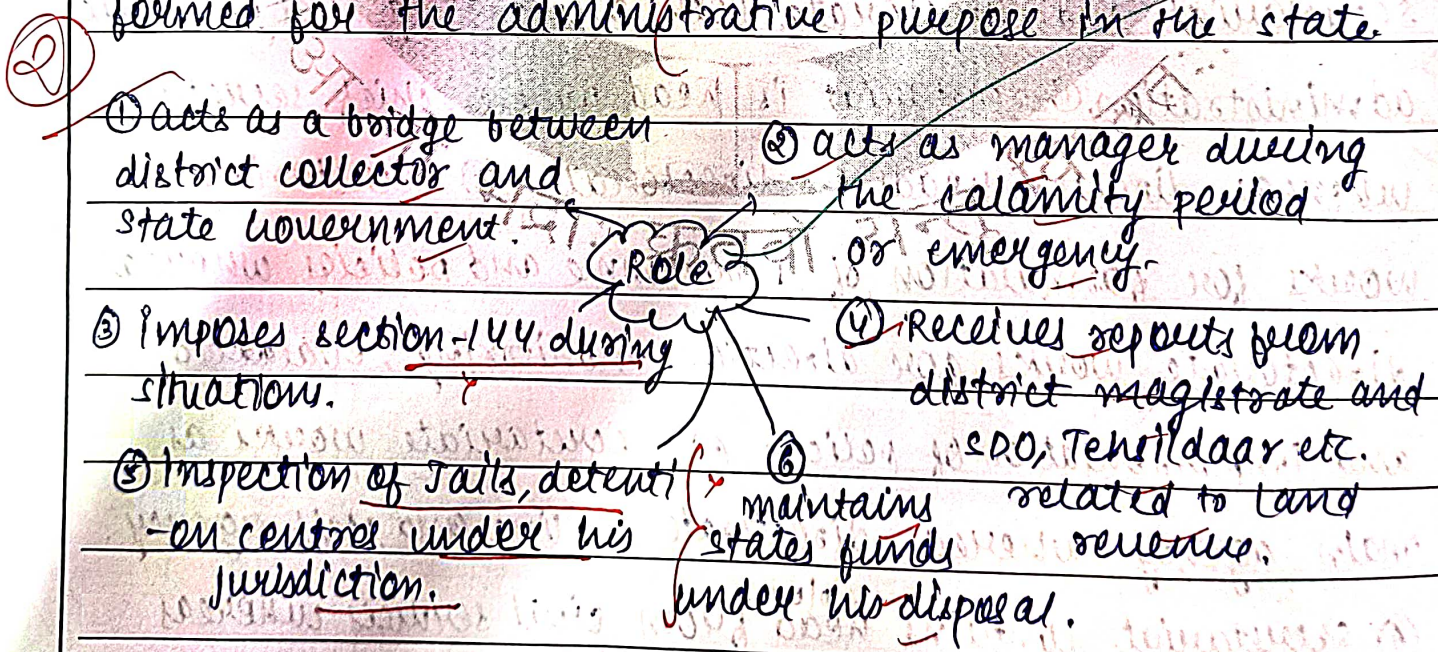 ②
formed for the administrative purpose in the state.
① acts as a bridge between
district collector and
state Government.
② acts as manager during
the calamity period
or emergency.
Role
③ imposes section-144 during
situations.
④ Receives reports from
district magistrate and
SDO, Tehsildaar etc.
related to land
revenue.
⑤ Inspection of Jails, detenti
-on centres under his
jurisdiction.
⑥
maintains
states funds
under his disposal.